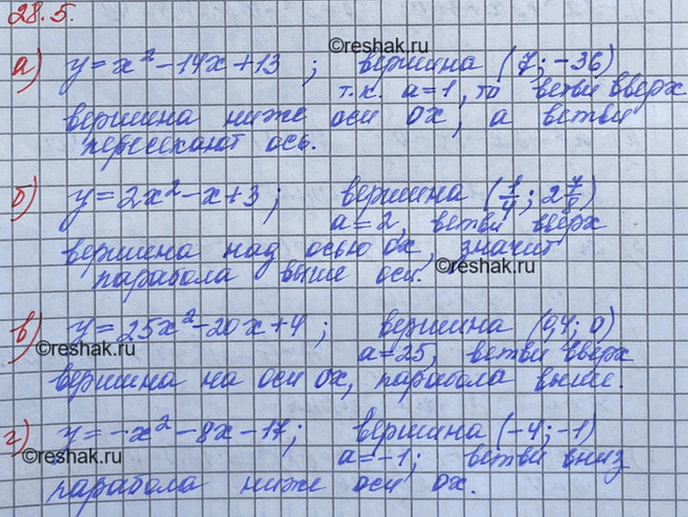 28.5.
©reshak.ru
а) y = x² - 14x + 13 ; вершина (7; -36)
т.к. a = 1, то ветви вверх
вершина ниже оси ОХ, а ветви
пересекают ось.
б) y = 2x² - x + 3 ; вершина (1/4; 2 7/8)
a = 2, ветви вверх
вершина над осью ОХ, значит
парабола выше оси. ©reshak.ru
в) y = 25x² - 20x + 4 ; вершина (0,4; 0)
©reshak.ru a = 25, ветви вверх
вершина на оси ОХ, парабола выше.
г) y = -x² - 8x - 17; вершина (-4; -1)
©reshak.ru a = -1; ветви вниз
парабола ниже оси ОХ.